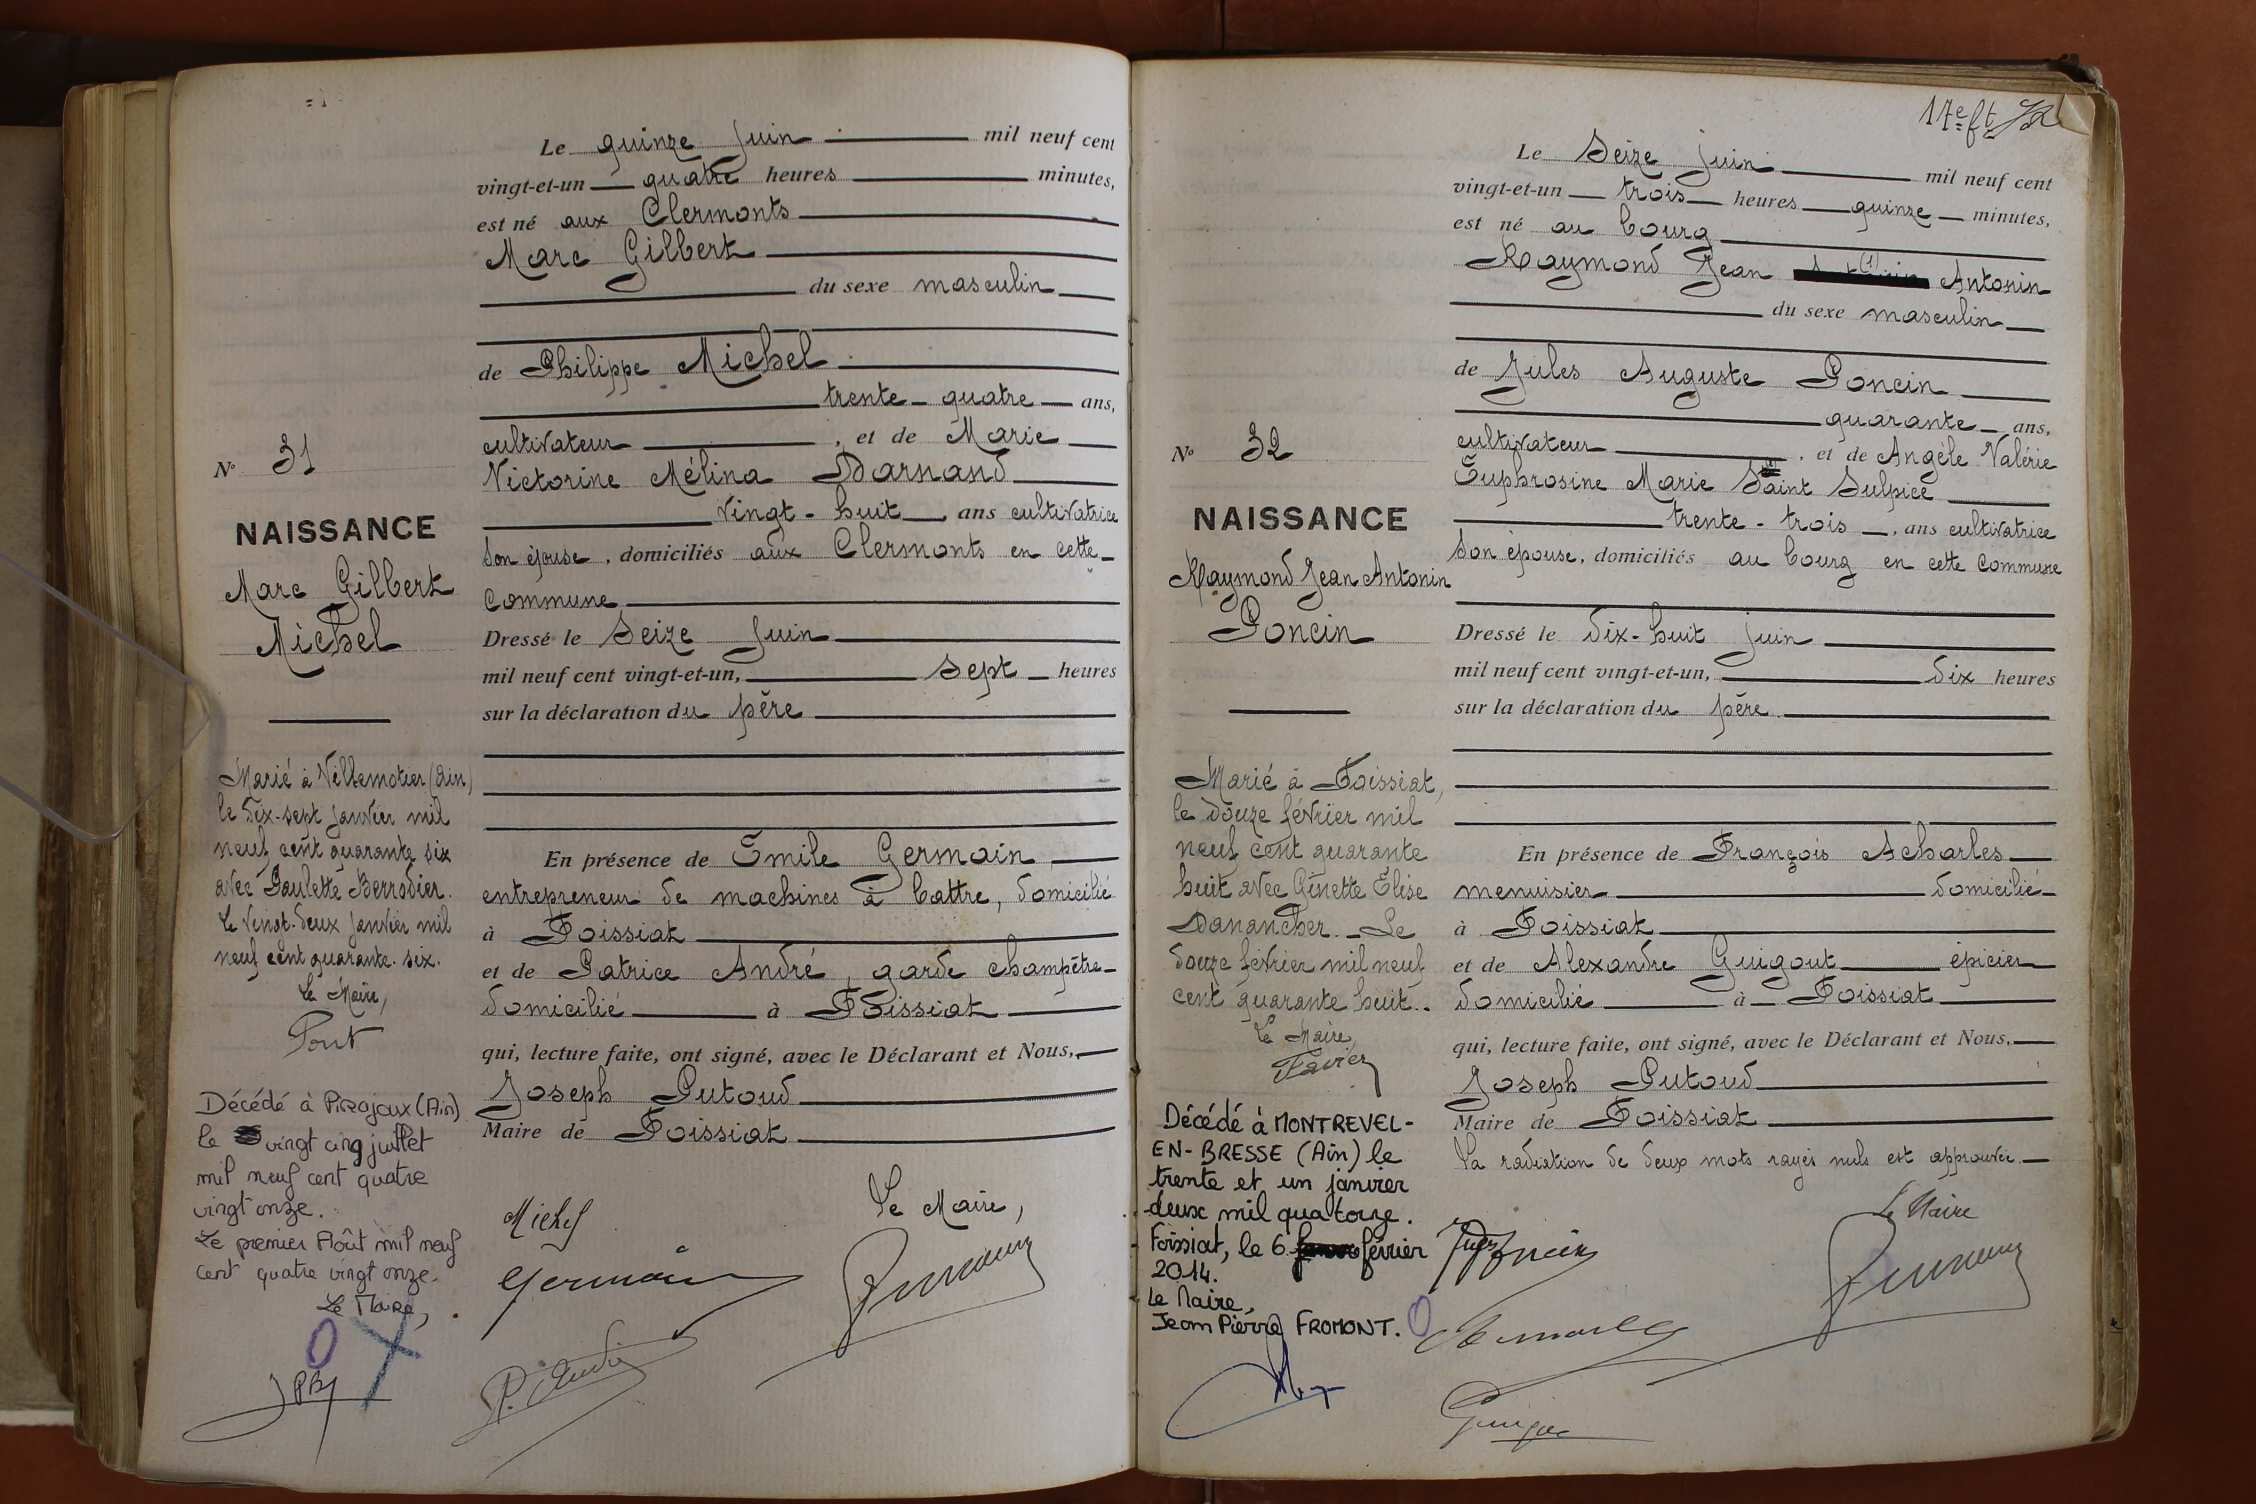 Le quinze Juin mil neuf cent
vingt-et-un quatre heures minutes,
est né aux Clermonts
Marc Gilbert
du sexe masculin
de Philippe Michel
trente-quatre ans,
cultivateur, et de Marie
Victorine Mélina Darnand
vingt-huit, ans cultivatrice
Son épouse, domiciliés aux Clermonts en cette
commune
Dressé le Seize Juin
mil neuf cent vingt-et-un, Sept heures
sur la déclaration du père
En présence de Emile Germain
entrepreneur de machines à battre, domicilié
à Foissiat
et de Patrice André, garde champêtre
domicilié à Foissiat
qui, lecture faite, ont signé, avec le Déclarant et Nous,
Joseph Putoud
Maire de Foissiat
Michel
Le Maire,
Germain
N° 31
NAISSANCE
Marc Gilbert
Michel
Marié à Villemotier (Ain)
le dix-sept janvier mil
neuf cent quarante six
avec Paulette Berrodier.
Le vingt-deux janvier mil
neuf cent quarante-six.
Le Maire,
Pont
Décédé à Pirajoux (Ain)
le vingt cinq juillet
mil neuf cent quatre
vingt onze.
Le premier Août mil neuf
cent quatre vingt onze.
Le Maire,
17e ft
Le Seize Juin mil neuf cent
vingt-et-un trois heures quinze minutes,
est né au bourg
Raymond Jean (1) Antonin
du sexe masculin
de Jules Auguste Poncin
quarante ans,
cultivateur, et de Angèle Valérie
Euphrosine Marie Saint Sulpice
trente-trois, ans cultivatrice
Son épouse, domiciliés au bourg en cette commune
Dressé le dix-huit juin
mil neuf cent vingt-et-un, dix heures
sur la déclaration du père
En présence de François Acharles
menuisier domicilié
à Foissiat
et de Alexandre Guigout épicier
domicilié à Foissiat
qui, lecture faite, ont signé, avec le Déclarant et Nous,
Joseph Putoud
Maire de Foissiat
La radiation de deux mots rayés nuls est approuvée.
Le Maire
N° 32
NAISSANCE
Raymond Jean Antonin
Poncin
Marié à Foissiat,
le douze février mil
neuf cent quarante
huit avec Ginette Elise
Danancher. Le
douze février mil neuf
cent quarante huit.
Le Maire,
Favier
Décédé à MONTREVEL-
EN-BRESSE (Ain) le
trente et un janvier
deux mil quatorze.
Foissiat, le 6 février
2014.
Le Maire,
Jean Pierre FROMONT.